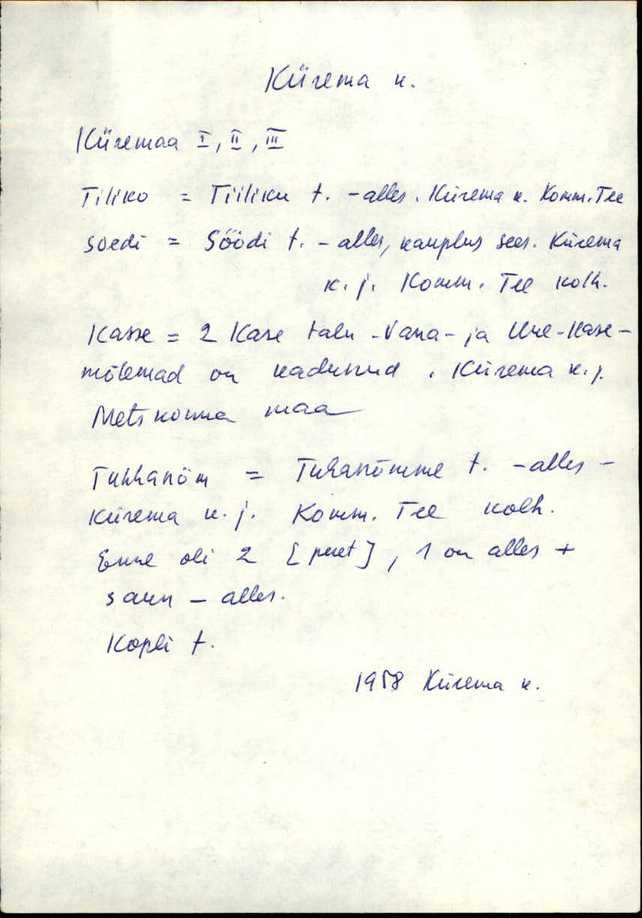 Kiirema k.
Kiiremaa I, II, III
Tiliko = Tiiliku t. - alles. Kiirema k. Komm. Tee
Soedi = Söödi t. - alles, kauplus sees. Kiirema
k. j. Komm. Tee kolh.
Kasse = 2 Kase talu - Vana- ja Uue-Kase -
mõlemad on kadunud. Kiirema k. j.
Metskonna maa
Tuhhanöm = Tuhanõmme t. - alles -
Kiirema k. j. Komm. Tee kolh.
Enne oli 2 [peret], 1 on alles +
saun - alles.
Kopli t.
1958 Kiirema k.